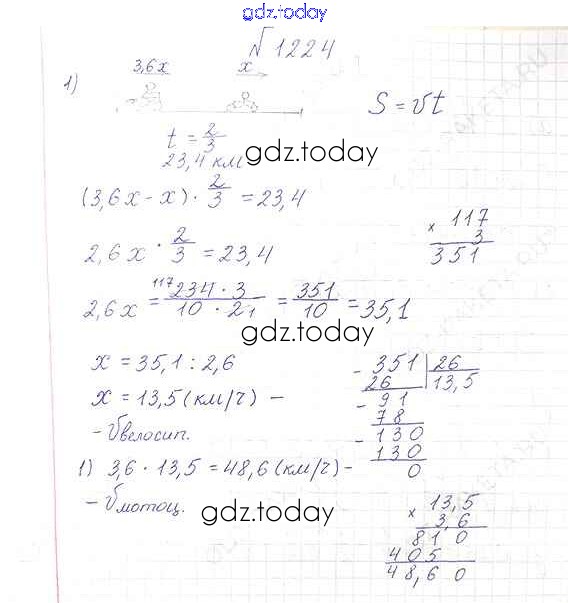 gdz.today
№1224
1)
3,6x x
S = vt
t = 2/3
23,4 км
gdz.today
(3,6x - x) · 2/3 = 23,4
2,6x · 2/3 = 23,4
2,6x = 117 234 · 3 / 10 · 2 1 = 351/10 = 35,1
gdz.today
x = 35,1 : 2,6
x = 13,5 (км/ч) -
- Vвелосип.
1) 3,6 · 13,5 = 48,6 (км/ч) -
- Vмотоц.
gdz.today
× 117
3
351
- 351 | 26
26 | 13,5
- 91
78
- 130
130
0
× 13,5
3,6
810
405
48,60